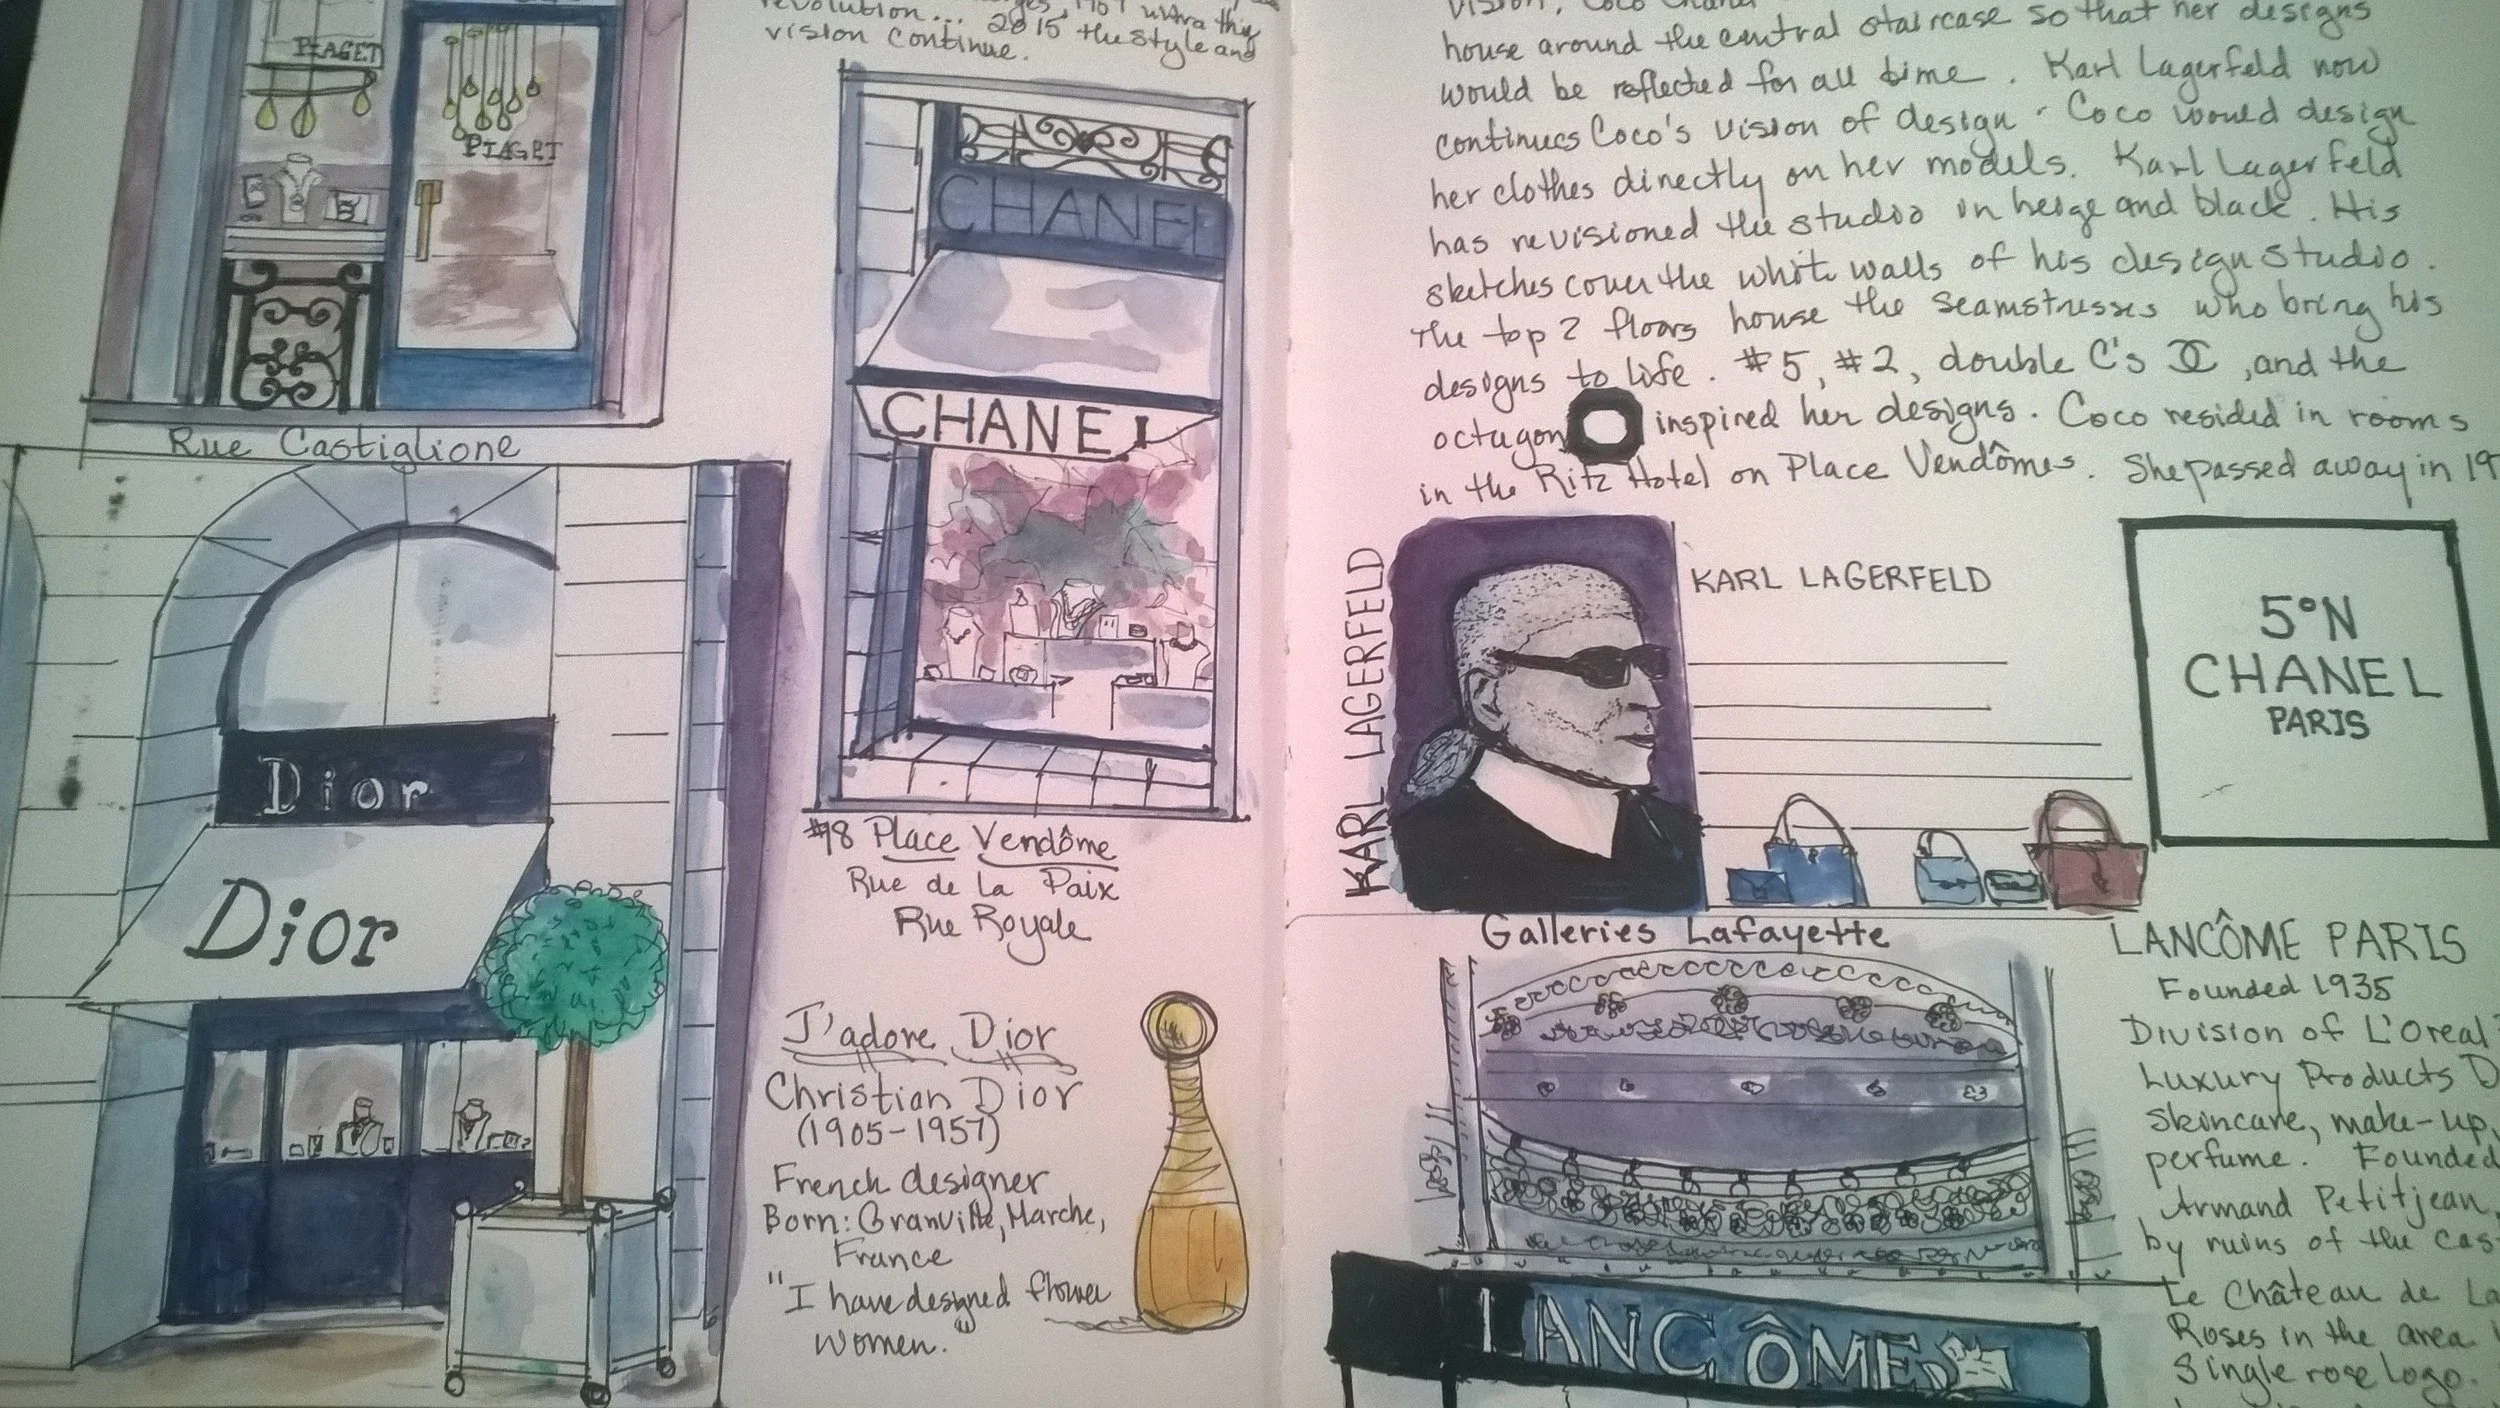 PIAGET
PIAGET
Rue Castiglione
revolution... 2015 the style and
vision continue.
CHANEL
CHANEL
#98 Place Vendôme
Rue de la Paix
Rue Royale
Dior
Dior
J'adore Dior
Christian Dior
(1905-1957)
French designer
Born: Granville, Marche,
France
"I have designed flower
women.
house around the central staircase so that her designs
would be reflected for all time. Karl Lagerfeld now
continues Coco's vision of design. Coco would design
her clothes directly on her models. Karl Lagerfeld
has revisioned the studio in beige and black. His
sketches cover the white walls of his design studio.
The top 2 floors house the seamstresses who bring his
designs to life. #5, #2, double C's , and the
octagon inspired her designs. Coco resided in rooms
in the Ritz Hotel on Place Vendômes. She passed away in 19
KARL LAGERFELD
KARL LAGERFELD
5°N
CHANEL
PARIS
Galleries Lafayette
LANCÔME
LANCÔME PARIS
Founded 1935
Division of L'Oreal
Luxury Products D
Skincare, make-up,
perfume. Founded
Armand Petitjean,
by ruins of the cas
Le Château de La
Roses in the area
Single rose logo.